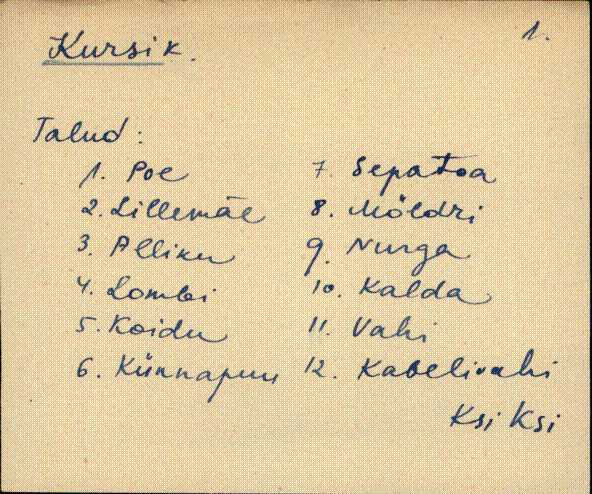 1.
Kursik.
Talud:
1. Poe
2. Lillemäe
3. Alliku
4. Lombi
5. Koidu
6. Künnapuu
7. Sepatoa
8. Möldri
9. Nurga
10. Kalda
11. Vahi
12. Kabelivahi
Ksi Ksi